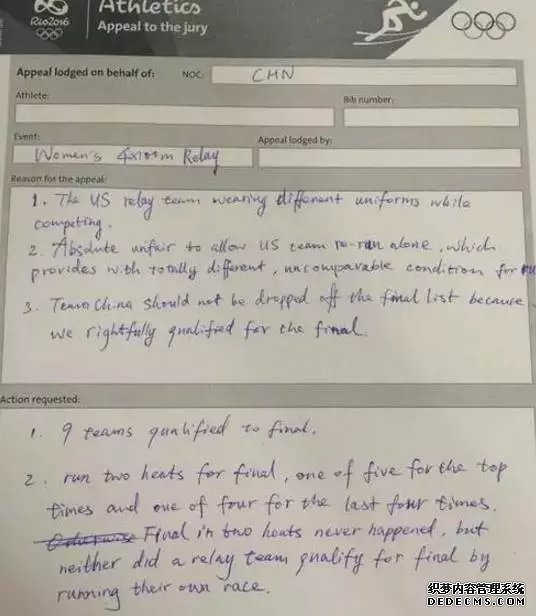 Athletics
Rio2016
Appeal to the jury
Appeal lodged on behalf of: NOC: CHN
Athlete:
Bib number:
Event:
Appeal lodged by:
Women's 4x100m Relay
Reason for the appeal:
1. The US relay team wearing different uniforms while
competing.
2. Absolute unfair to allow US team re-run alone, which
provides with totally different, uncomparable condition for
3. Team China should not be dropped off the final list because
we rightfully qualified for the final.
Action requested:
1. 9 teams qualified to final.
2. run two heats for final, one of five for the top
times and one of four for the last four times.
Otherwise Final in two heats never happened, but
neither did a relay team qualify for final by
running their own race.
织梦内容管理系统
DEDECMS.COM